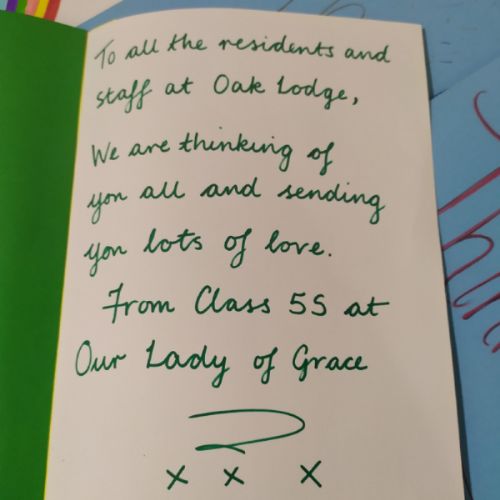 To all the residents and
staff at Oak Lodge,
We are thinking of
you all and sending
you lots of love.
From Class 5S at
Our Lady of Grace
x x x